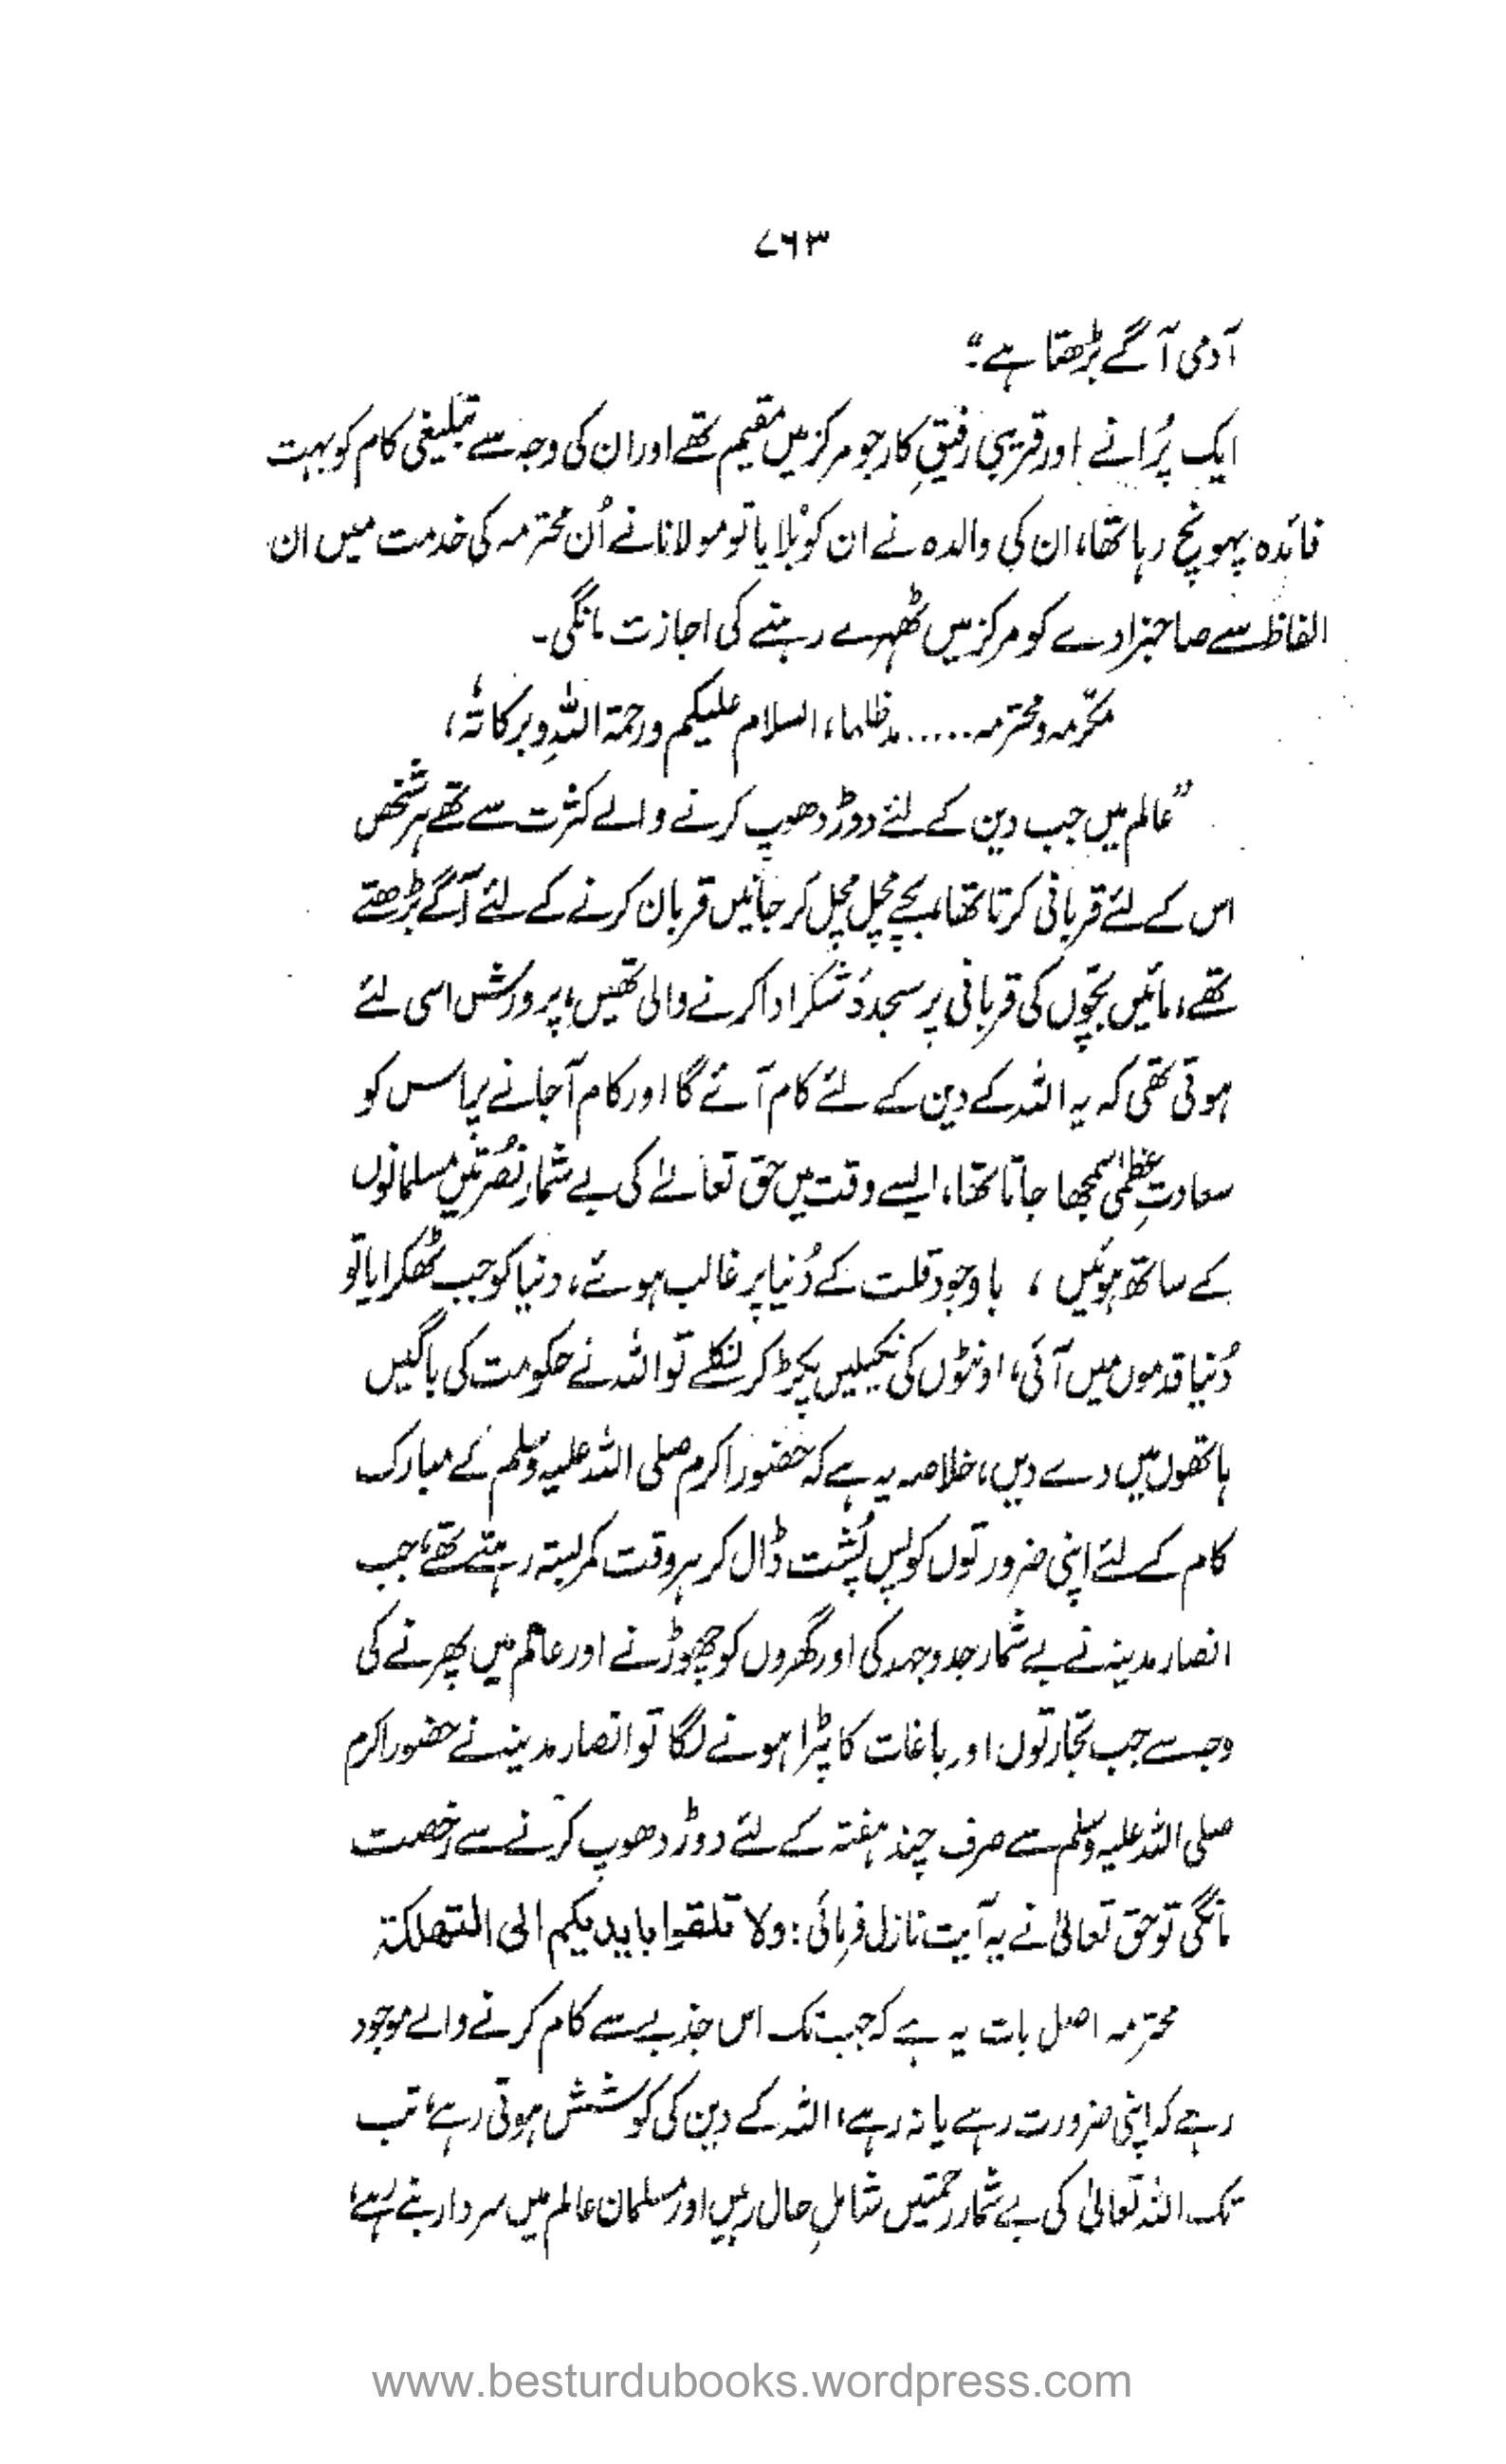 ۷۶۳
آدمی آگے بڑھتا ہے"
ایک پُرانے اور قریبی رفیقِ کار جو مرکز میں مقیم تھے اور ان کی وجہ سے تبلیغی کام کو بہت
فائدہ پہونچ رہا تھا، ان کی والدہ نے ان کو بُلایا تو مولانا نے اُن محترمہ کی خدمت میں ان
الفاظ سے صاحبزادے کو مرکز میں ٹھہرے رہنے کی اجازت مانگی۔
مکرّمہ و محترمہ ...... مدظلہاء، السلام علیکم ورحمۃ اللہِ وبرکاتہٗ،
"عالم میں جب دین کے لئے دوڑ دھوپ کرنے والے کثرت سے تھے ہر شخص
اس کے لئے قربانی کرتا تھا، بچے مچل مچل کر جانیں قربان کرنے کے لئے آگے بڑھتے
تھے، مائیں بچّوں کی قربانی پر سجدۂ شکر ادا کرنے والی تھیں، پرورش اسی لئے
ہوتی تھی کہ یہ اللہ کے دین کے لئے کام آئے گا اور کام آجانے پر اس کو
سعادتِ عظمیٰ سمجھا جاتا تھا، ایسے وقت میں حق تعالےٰ کی بے شمار نُصرتیں مسلمانوں
کے ساتھ ہوئیں ، باوجود قلت کے دُنیا پر غالب ہوئے، دنیا کو جب ٹھکرایا تو
دُنیا قدموں میں آئی، اونٹوں کی نکیلیں پکڑ کر نکلے تو اللہ نے حکومت کی باگیں
ہاتھوں میں دے دیں، خلاصہ یہ ہے کہ حضور اکرم صلی اللہ علیہ وسلم کے مبارک
کام کے لئے اپنی ضرورتوں کو پس پُشت ڈال کر ہر وقت کمربستہ رہتے تھے، جب
انصار مدینہ نے بے شمار جدوجہد کی اور گھروں کو چھوڑنے اور عالم میں پھرنے کی
وجہ سے جب تجارتوں اور باغات کا پٹرا ہونے لگا تو انصار مدینہ نے حضور اکرم
صلی اللہ علیہ وسلم سے صرف چند ہفتہ کے لئے دوڑ دھوپ کرنے سے رخصت
مانگی تو حق تعالیٰ نے یہ آیت نازل فرمائی: ولا تلقوا بایدیکم الی التھلکۃ
محترمہ اصل بات یہ ہے کہ جب تک اس جذبے سے کام کرنے والے موجود
رہے کہ اپنی ضرورت رہے یا نہ رہے، اللہ کے دین کی کوشش ہوتی رہے، تب
تک اللہ تعالیٰ کی بے شمار رحمتیں شاملِ حال رہیں اور مسلمان عالم میں سردار بنے رہے،
www.besturdubooks.wordpress.com